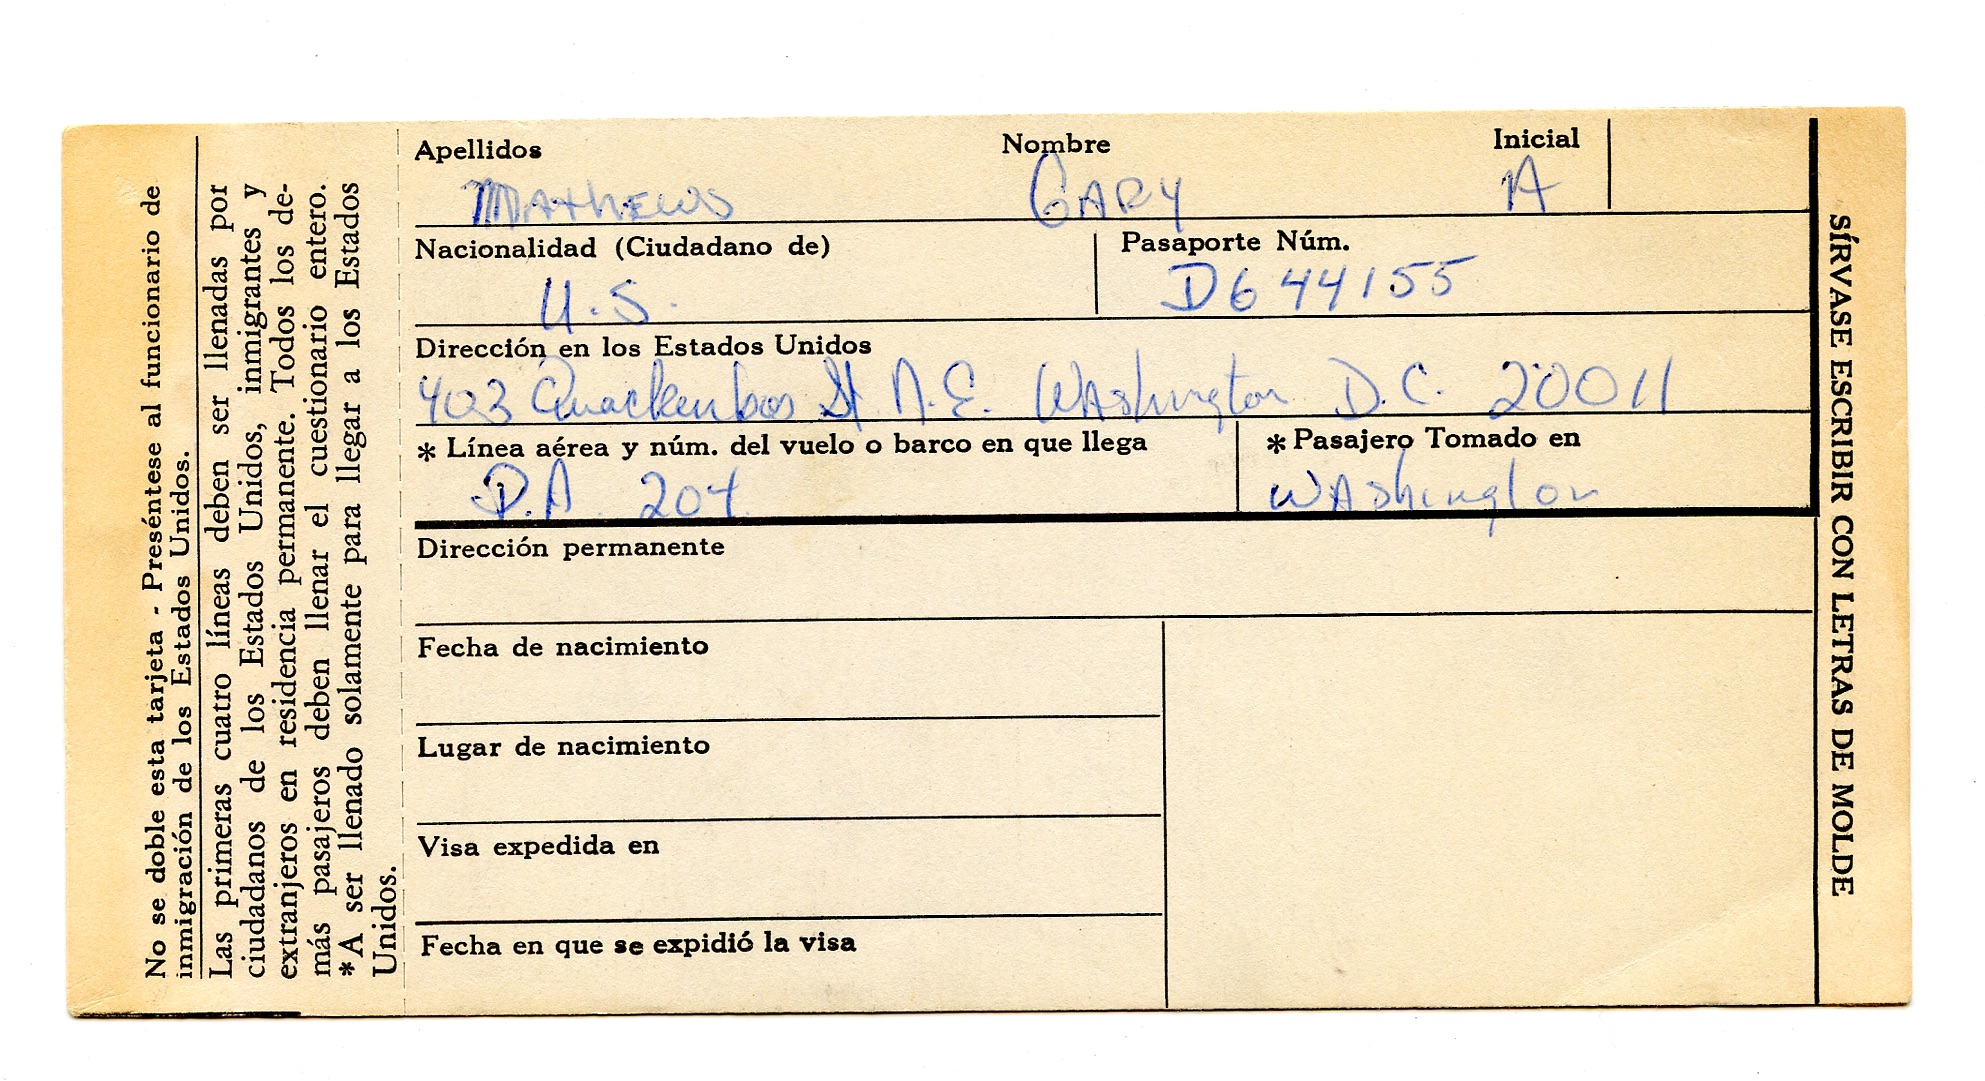 No se doble esta tarjeta - Preséntese al funcionario de
inmigración de los Estados Unidos.
Las primeras cuatro líneas deben ser llenadas por
ciudadanos de los Estados Unidos, inmigrantes y
extranjeros en residencia permanente. Todos los de-
más pasajeros deben llenar el cuestionario entero.
*A ser llenado solamente para llegar a los Estados
Unidos.
Apellidos Nombre Inicial
MAthEWS GARY A
Nacionalidad (Ciudadano de) Pasaporte Núm.
U.S. D644155
Dirección en los Estados Unidos
403 Quackenbos St N.E. WAshington D.C. 20011
* Línea aérea y núm. del vuelo o barco en que llega * Pasajero Tomado en
P.A. 204 WAshington
Dirección permanente
Fecha de nacimiento
Lugar de nacimiento
Visa expedida en
Fecha en que se expidió la visa
SÍRVASE ESCRIBIR CON LETRAS DE MOLDE